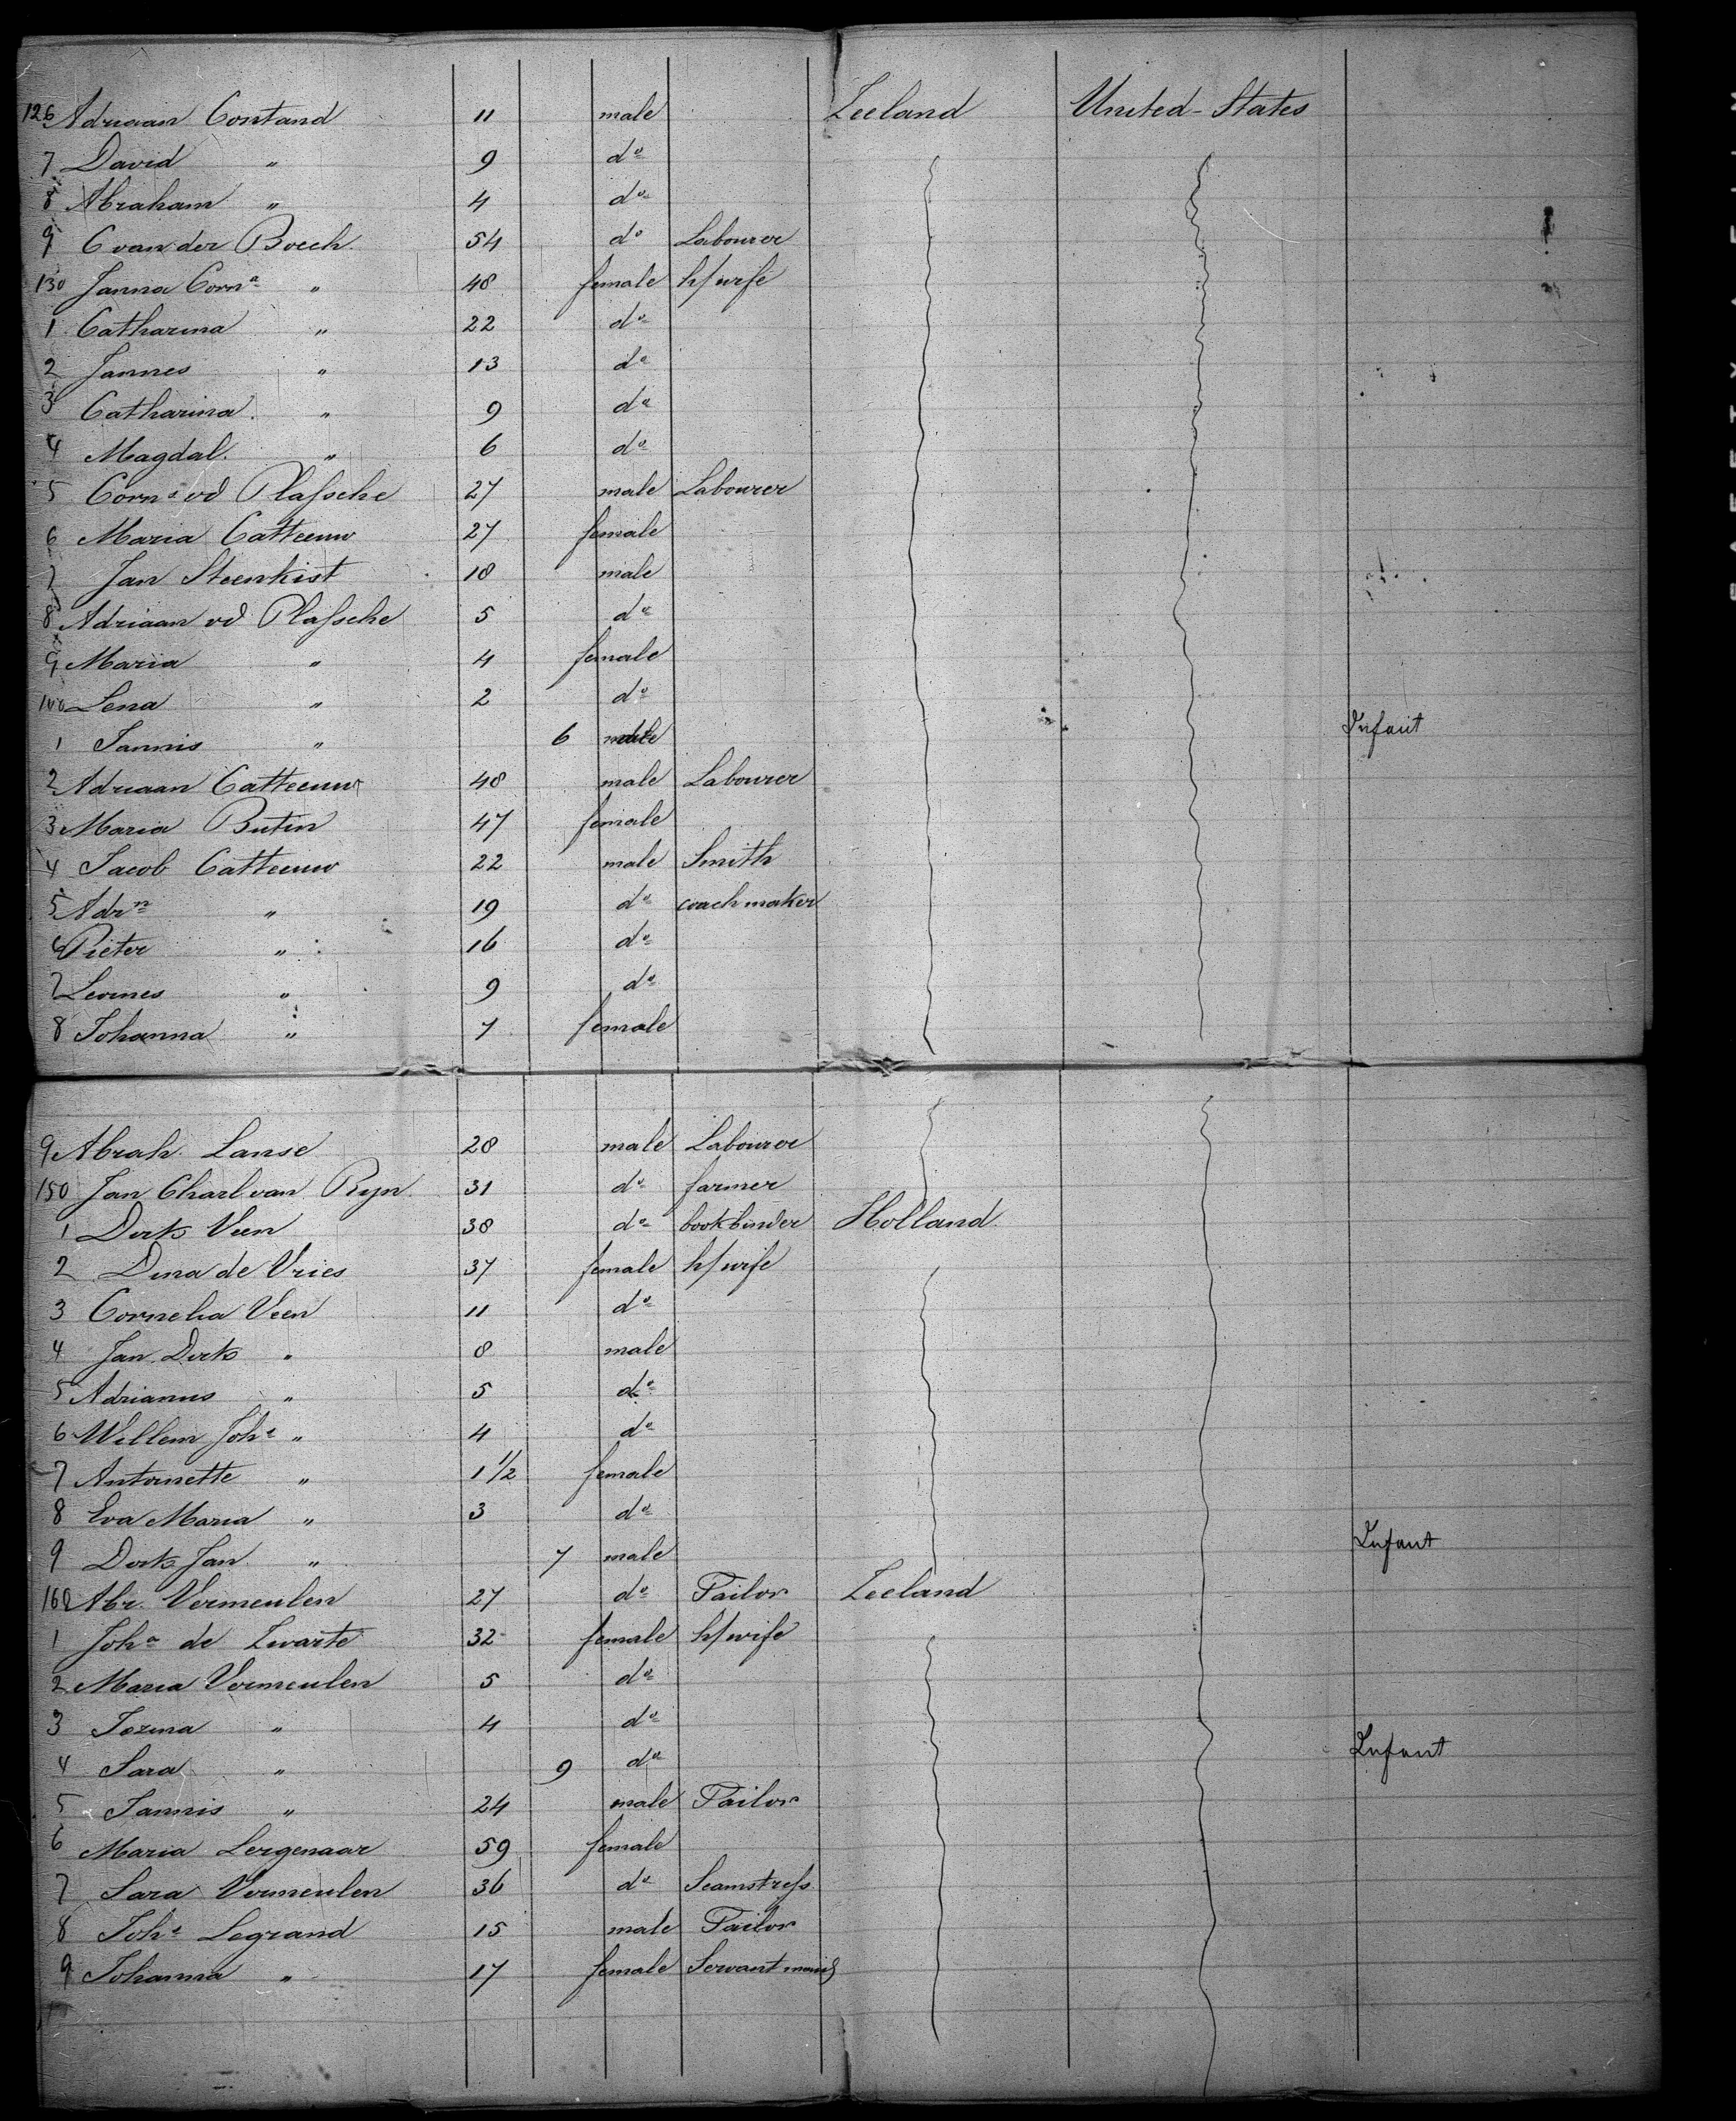 126 Adriaan Contand 11 male Zeeland United-States
7 David " 9 do
8 Abraham " 4 do
9 C van der Boech 54 do Labourer
130 Janna Corna " 48 female h/wife
1 Catharina " 22 do
2 Jannes " 13 do
3 Catharina " 9 do
4 Magdal. " 6 do
5 Corns vd Plassche 27 male Labourer
6 Maria Catteeuw 27 female
7 Jan Steenkist 18 male
8 Adriaan vd Plassche 5 do
9 Maria " 4 female
140 Lena " 2 do
1 Jannis " 6 male Infant
2 Adriaan Catteeuw 48 male Labourer
3 Maria Butin 47 female
4 Jacob Catteeuw 22 male Smith
5 Adrn " 19 do coachmaker
6 Pieter " 16 do
7 Levines " 9 do
8 Johanna " 7 female
9 Abrah. Lanse 28 male Labourer
150 Jan Charl van Ryn 31 do farmer
1 Dirk Veen 38 do bookbinder Holland
2 Dina de Vries 37 female h/wife
3 Cornelia Veen 11 do
4 Jan Dirk " 8 male
5 Adrianus " 5 do
6 Willem Johs " 4 do
7 Antoinette " 1 1/2 female
8 Eva Maria " 3 do
9 Dirk Jan " 7 male Infant
160 Abr. Vermeulen 27 do Tailor Zeeland
1 Joha de Zwarte 32 female h/wife
2 Maria Vermeulen 5 do
3 Jozina " 4 do
4 Sara " 9 do Infant
5 Jannis " 24 male Tailor
6 Maria Lergenaar 59 female
7 Sara Vermeulen 36 do Seamstress
8 Johs Legrand 15 male Tailor
9 Johanna " 17 female Servant maid